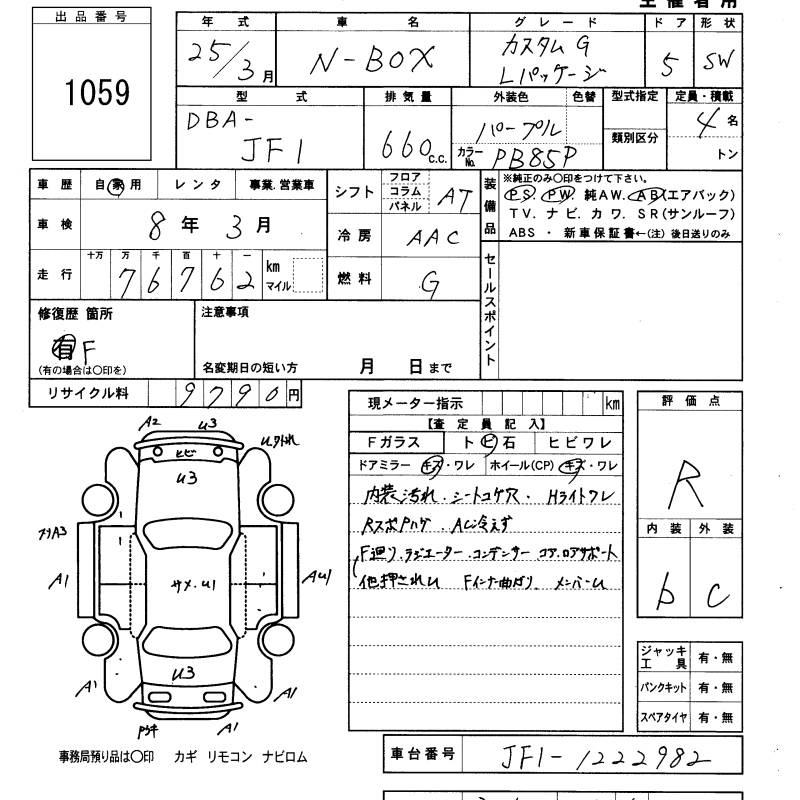 出品番号
1059
年式 車名 グレード ドア 形状
25/3月 N-BOX カスタムG Lパッケージ 5 SW
型式 排気量 外装色 色替 型式指定 定員・積載
DBA-JF1 660c.c. パープル 4名
カラーNo. PB85P 類別区分 トン
車歴 自家用 レンタ 事業.営業車
車検 8年3月
走行 十万 万 千 百 十 一
76762 km マイル
シフト フロア コラム パネル AT
冷房 AAC
燃料 G
装備品 ※純正のみ○印をつけて下さい。
PS. PW. 純AW. AB(エアバック)
TV. ナビ. カワ. SR(サンルーフ)
ABS ・ 新車保証書←(注) 後日送りのみ
セールスポイント
修復歴 箇所
有 F
(有の場合は○印を)
注意事項
名変期日の短い方 月 日まで
リサイクル料 9790円
現メーター指示 km
【査定員記入】
Fガラス トビ石 ヒビワレ
ドアミラー キズ・ワレ ホイール(CP) キズ・ワレ
内装汚れ.シートコゲ穴.Hライトワレ
RスポPハゲ.AC冷えず
F廻り.ラジエーター.コンデンサー コア.ロアサポート
他押されU Fインナー曲がり.メンバーU
評価点
R
内装 外装
b C
ジャッキ工具 有・無
パンクキット 有・無
スペアタイヤ 有・無
A2 U3
ヒビ
U3
U外れ
A3
A1
サメ.U1
AU1
U3
A1 A1
A1
事務局預り品は○印 カギ リモコン ナビロム
車台番号 JF1-1222982